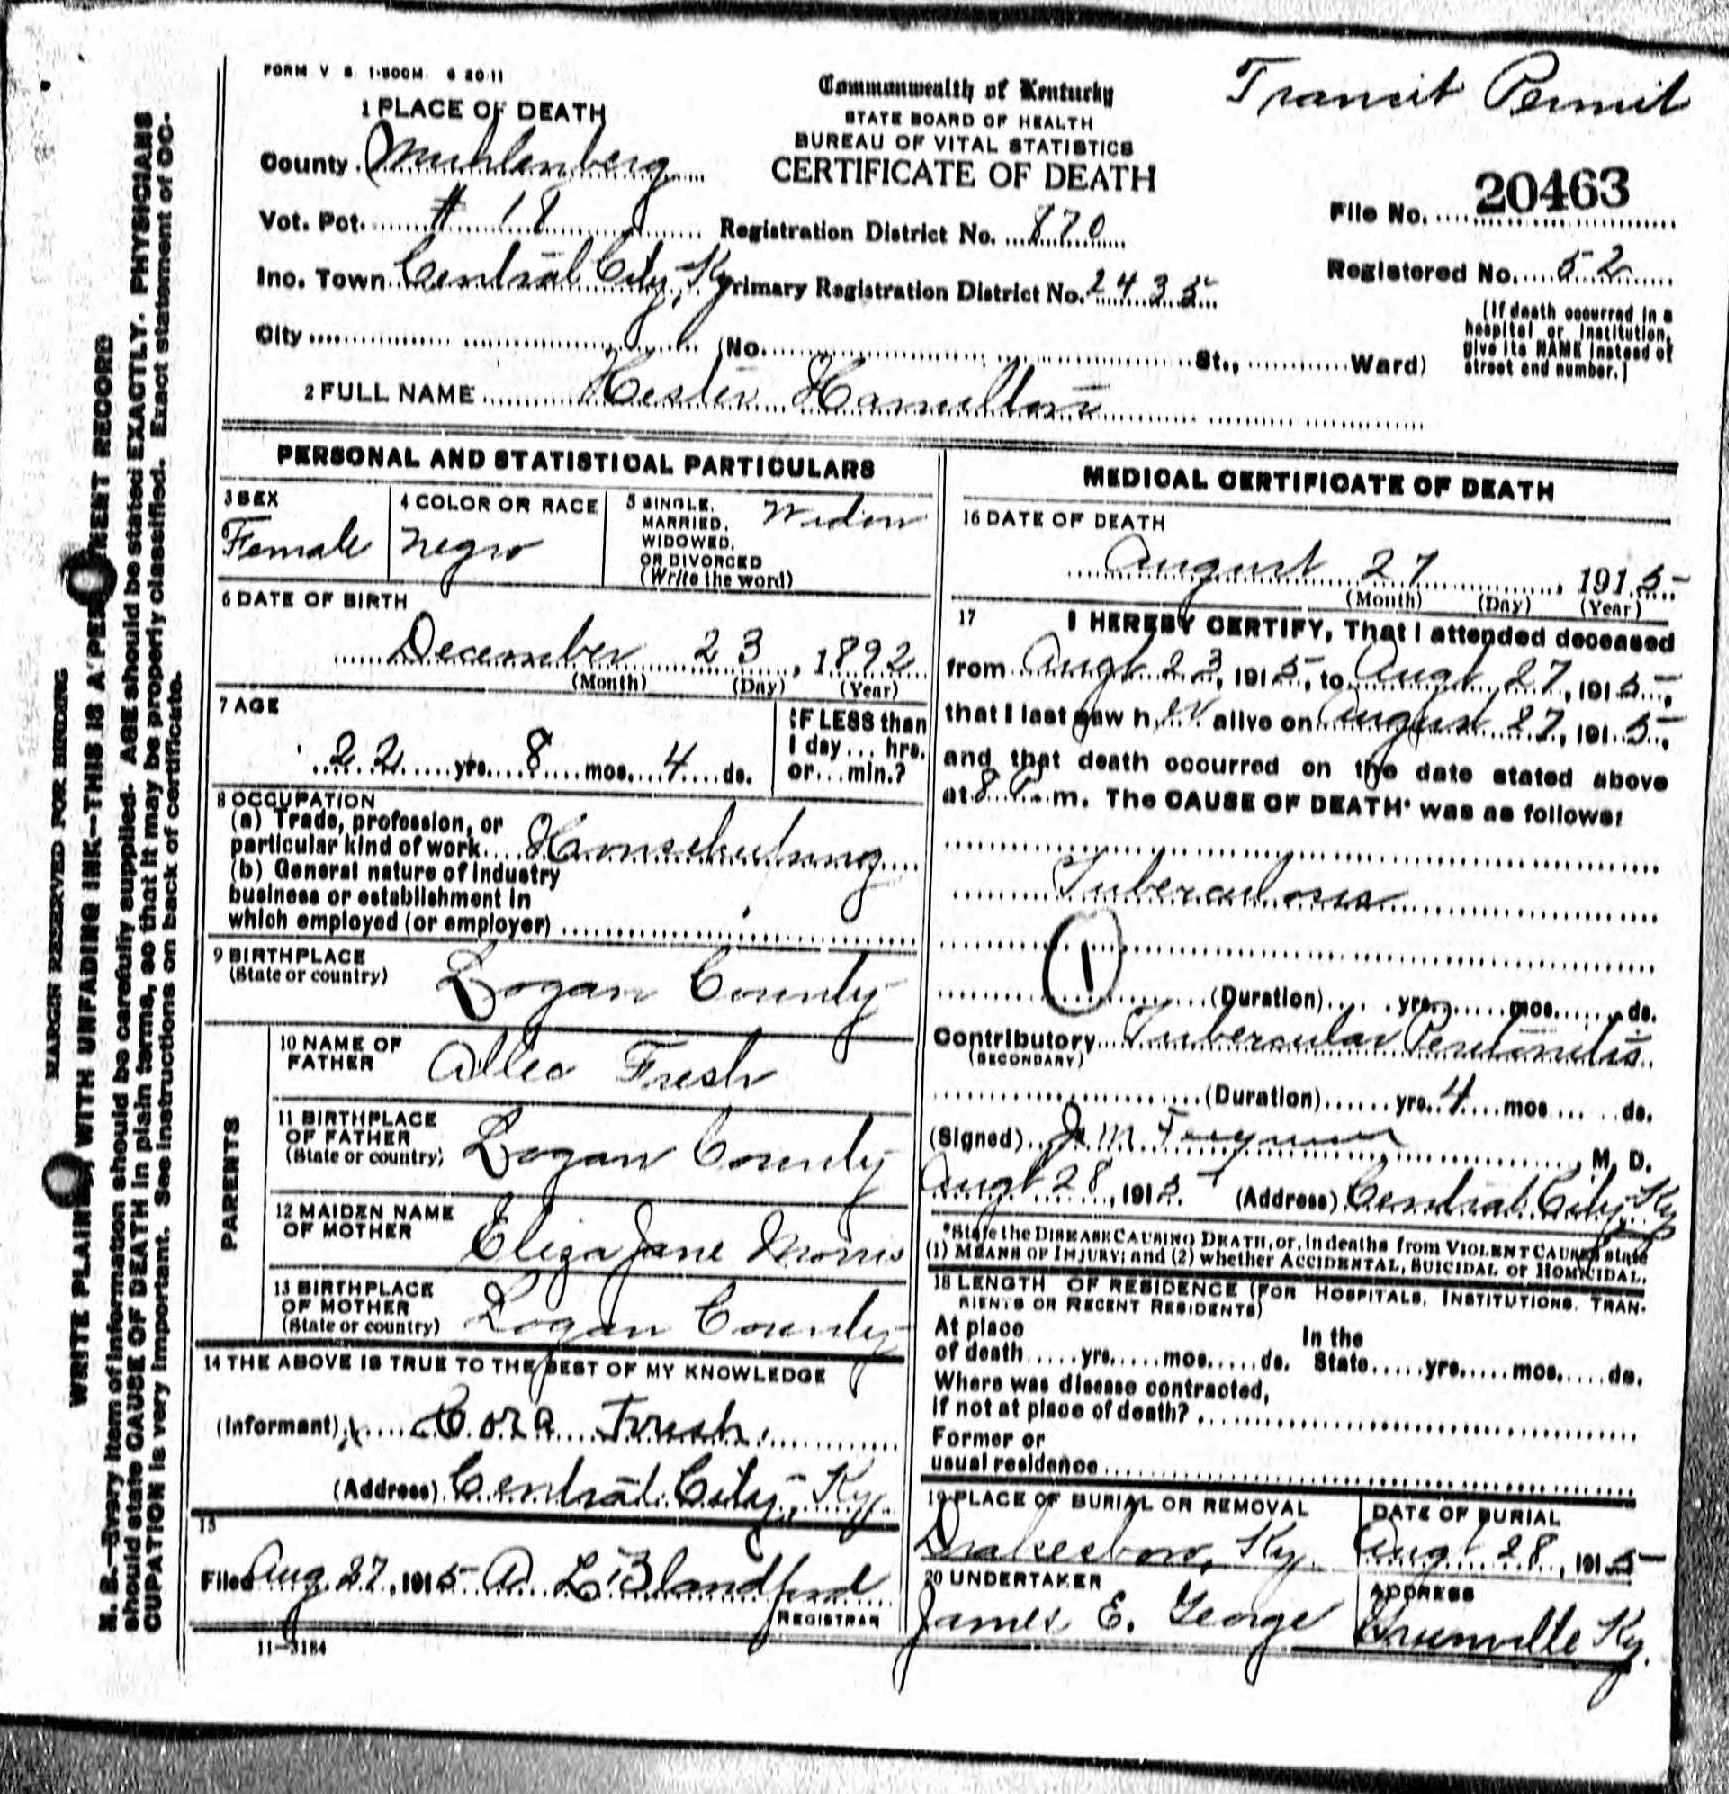 FORM V S 1-500M 6 20 11
Transit Permit
Commonwealth of Kentucky
STATE BOARD OF HEALTH
BUREAU OF VITAL STATISTICS
CERTIFICATE OF DEATH
1 PLACE OF DEATH
County Muhlenberg
Vot. Pct. # 18
Registration District No. 870
File No. 20463
Inc. Town Central City, Ky
Primary Registration District No. 2435
Registered No. 52
City (No. St., Ward)
(If death occurred in a
hospital or institution,
give its NAME instead of
street and number.)
2 FULL NAME Hester Hamilton
PERSONAL AND STATISTICAL PARTICULARS
3 SEX
Female
4 COLOR OR RACE
Negro
5 SINGLE,
MARRIED,
WIDOWED,
OR DIVORCED
(Write the word)
Widow
6 DATE OF BIRTH
December 23, 1892
(Month) (Day) (Year)
7 AGE
22 yrs. 8 mos. 4 ds.
IF LESS than
1 day ... hrs.
or ... min.?
8 OCCUPATION
(a) Trade, profession, or
particular kind of work
(b) General nature of industry
business or establishment in
which employed (or employer)
9 BIRTHPLACE
(State or country)
Logan County
PARENTS
10 NAME OF
FATHER
Fresh
11 BIRTHPLACE
OF FATHER
(State or country)
Logan County
12 MAIDEN NAME
OF MOTHER
Eliza Jane Morris
13 BIRTHPLACE
OF MOTHER
(State or country)
Logan County
14 THE ABOVE IS TRUE TO THE BEST OF MY KNOWLEDGE
(Informant) Cora Fresh
(Address) Central City, Ky.
15
Filed Aug 27, 1915 A. L. Blandford
REGISTRAR
11-3184
MEDICAL CERTIFICATE OF DEATH
16 DATE OF DEATH
August 27, 1915
(Month) (Day) (Year)
17 I HEREBY CERTIFY, That I attended deceased
from Augt 23, 1915, to Augt 27, 1915,
that I last saw h er alive on August 27, 1915,
and that death occurred on the date stated above
at 8 m. The CAUSE OF DEATH* was as follows:
Tuberculosis
1
(Duration) yrs. mos. ds.
Contributory Tubercular Peritonitis
(SECONDARY)
(Duration) yrs. 4 mos. ds.
(Signed) J. M. M. D.
Augt 28, 1915 (Address) Central City, Ky
*State the DISEASE CAUSING DEATH, or, in deaths from VIOLENT CAUSES, state
(1) MEANS OF INJURY; and (2) whether ACCIDENTAL, SUICIDAL or HOMICIDAL.
18 LENGTH OF RESIDENCE (FOR HOSPITALS, INSTITUTIONS, TRAN-
SIENTS OR RECENT RESIDENTS)
At place
of death yrs. mos. ds.
In the
State yrs. mos. ds.
Where was disease contracted,
if not at place of death?
Former or
usual residence
19 PLACE OF BURIAL OR REMOVAL
Drakesboro, Ky.
DATE OF BURIAL
Augt 28, 1915
20 UNDERTAKER
James E. George
ADDRESS
Greenville Ky.
MARGIN RESERVED FOR BINDING
WRITE PLAINLY, WITH UNFADING INK—THIS IS A PERMANENT RECORD
N. B.—Every item of information should be carefully supplied. AGE should be stated EXACTLY. PHYSICIANS
should state CAUSE OF DEATH in plain terms, so that it may be properly classified. Exact statement of OC-
CUPATION is very important. See instructions on back of certificate.